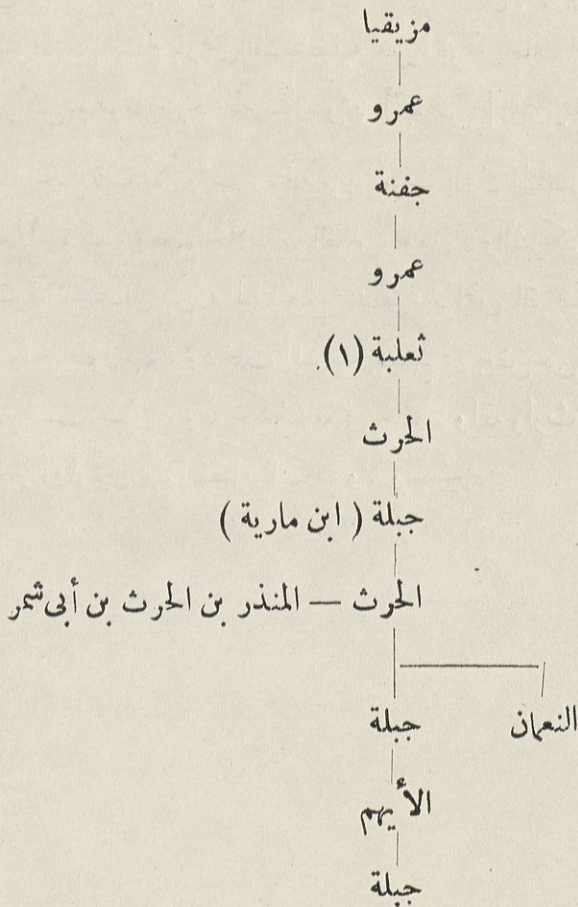 مزيقيا
عمرو
جفنة
عمرو
ثعلبة (١).
الحرث
جبلة ( ابن مارية )
الحرث — المنذر بن الحرث بن أبى شمر
النعمان جبلة
الأيهم
جبلة